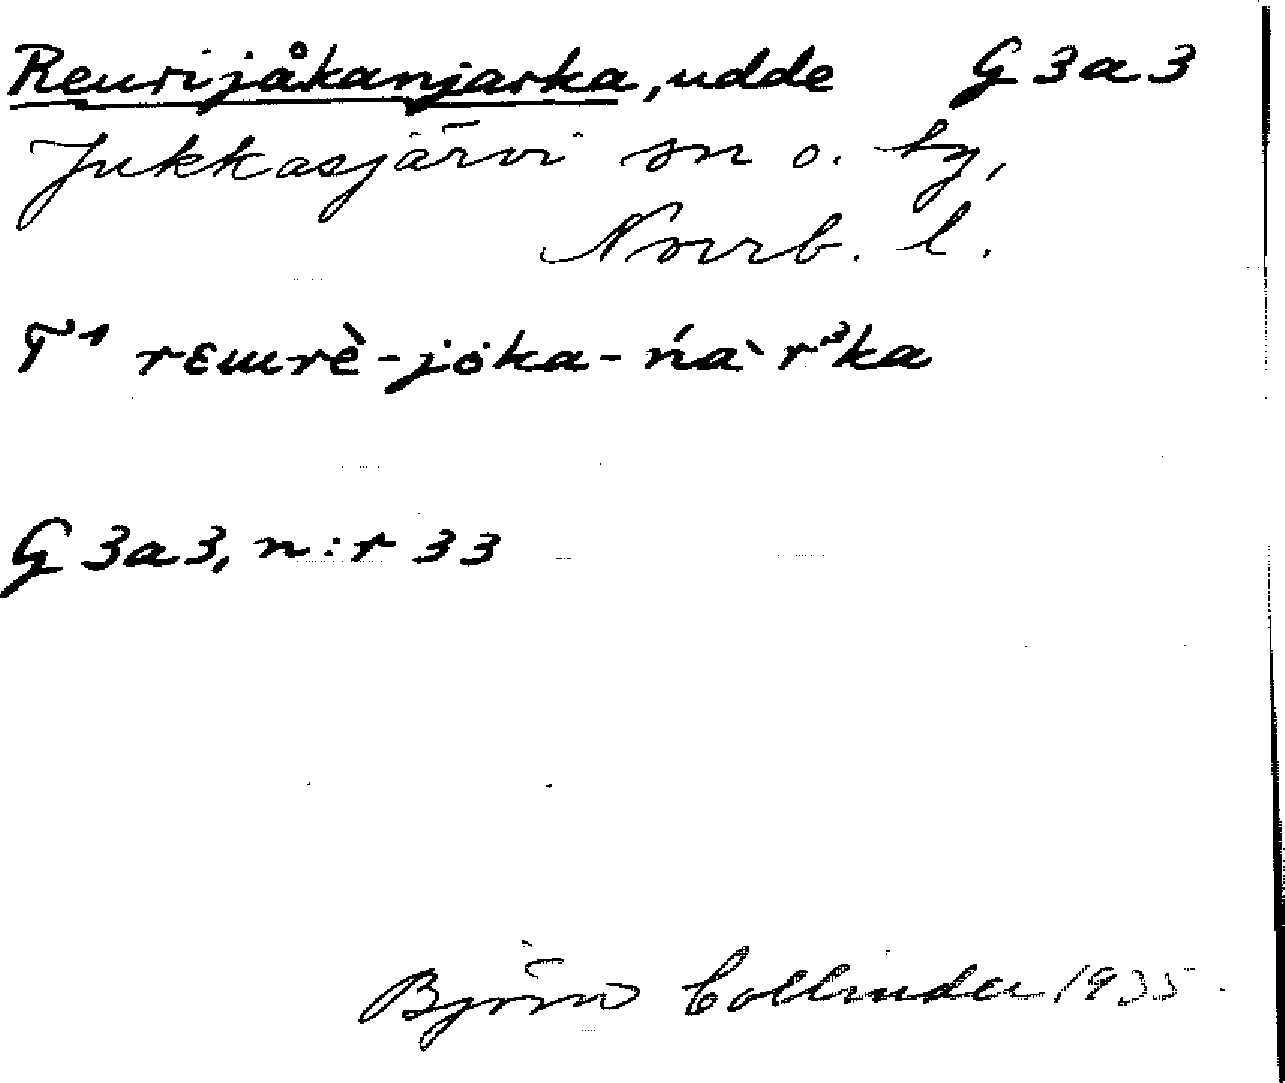 Reurijåkanjarka, udde G3a3
Jukkasjärvi sn o. by,
Norrb. l.
T¹ rɛɯrè-jȯka-ńàrᵌka
G3a3, n:r 33
Björn Collinder 1935.